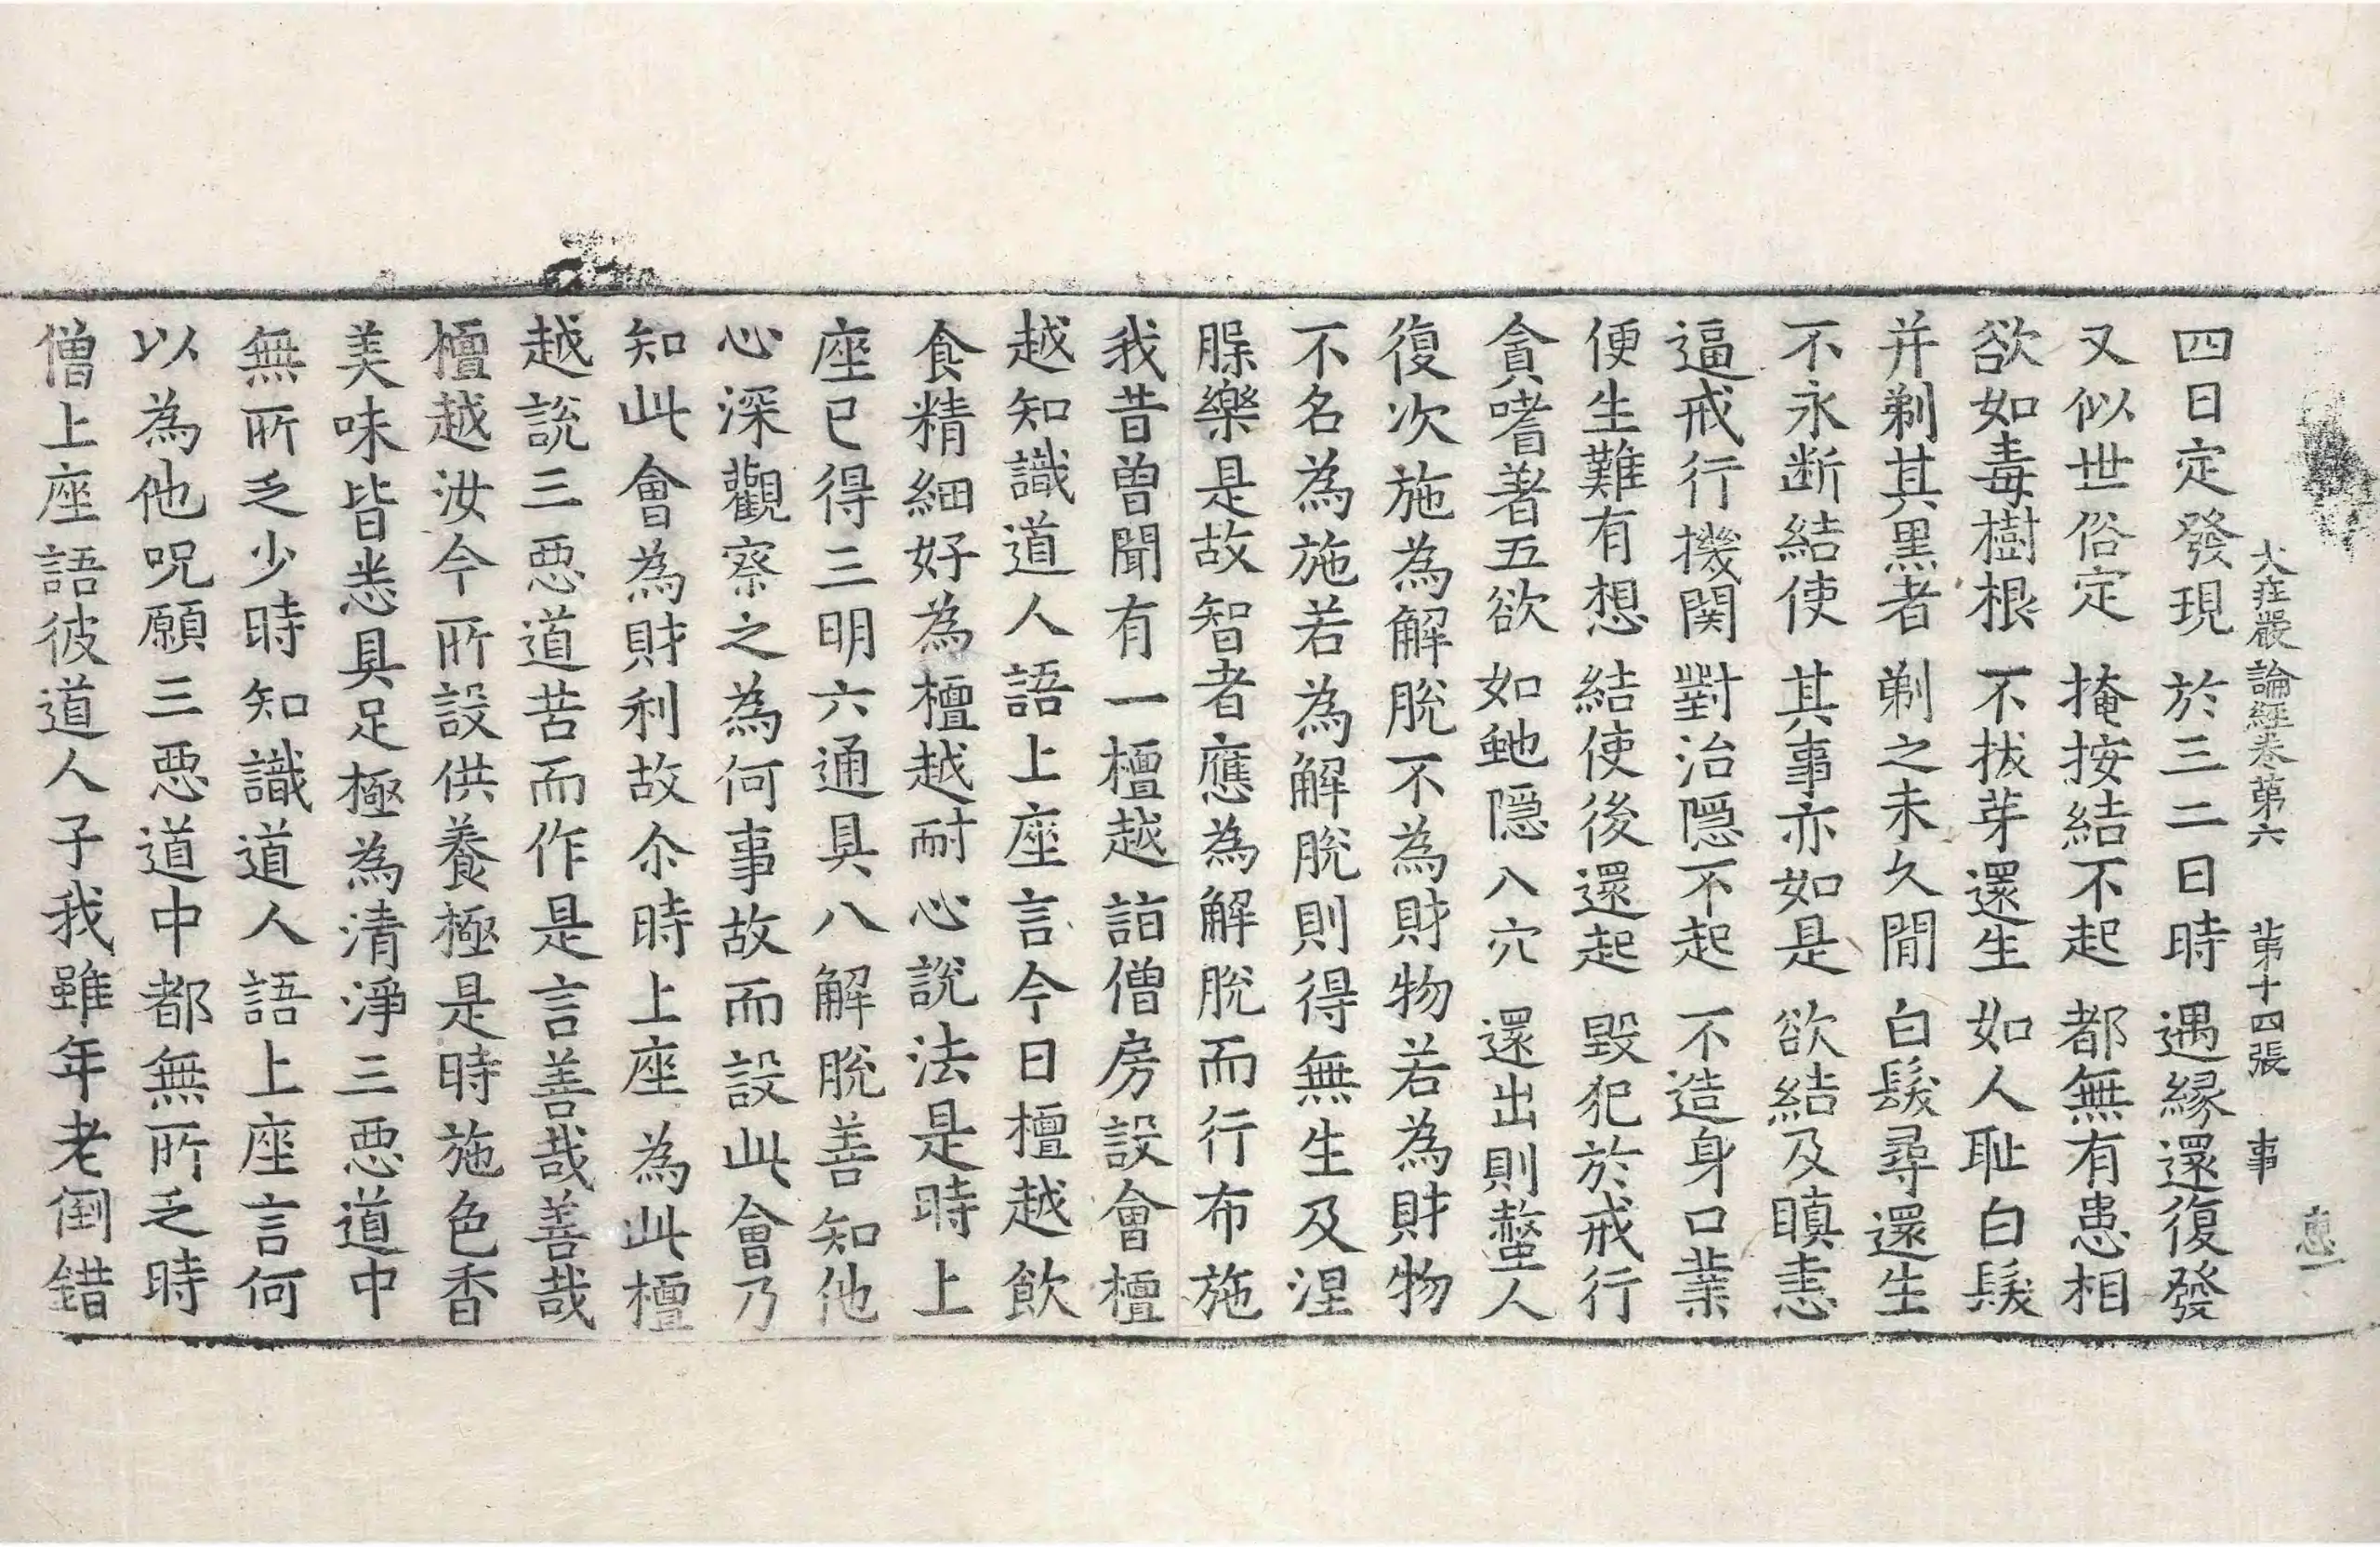 大莊嚴論經卷第六 第十四張 事
四日定發現 於三二日時 遇緣還復發
又似世俗定 掩按結不起 都無有患相
欲如毒樹根 不拔芽還生 如人耻白髮
并剃其黑者 剃之未久閒 白髮尋還生
不永断結使 其事亦如是 欲結及瞋恚
逼戒行機関 對治隱不起 不造身口業
便生難有想 結使後還起 毀犯於戒行
貪嗜著五欲 如虵隱入穴 還出則螫人
復次施為解脫不為財物若為財物
不名為施若為解脫則得無生及涅
縣樂是故智者應為解脫而行布施
我昔曾聞有一檀越詣僧房設會檀
越知識道人語上座言今日檀越飲
食精細好為檀越耐心說法是時上
座已得三明六通具八解脫善知他
心深觀察之為何事故而設此會乃
知此會為財利故尒時上座為此檀
越說三惡道苦而作是言善哉善哉
檀越汝今所設供養極是時施色香
美味皆悉具足極為清淨三惡道中
無所乏少時知識道人語上座言何
以為他呪願三惡道中都無所乏時
僧上座語彼道人子我雖年老倒錯